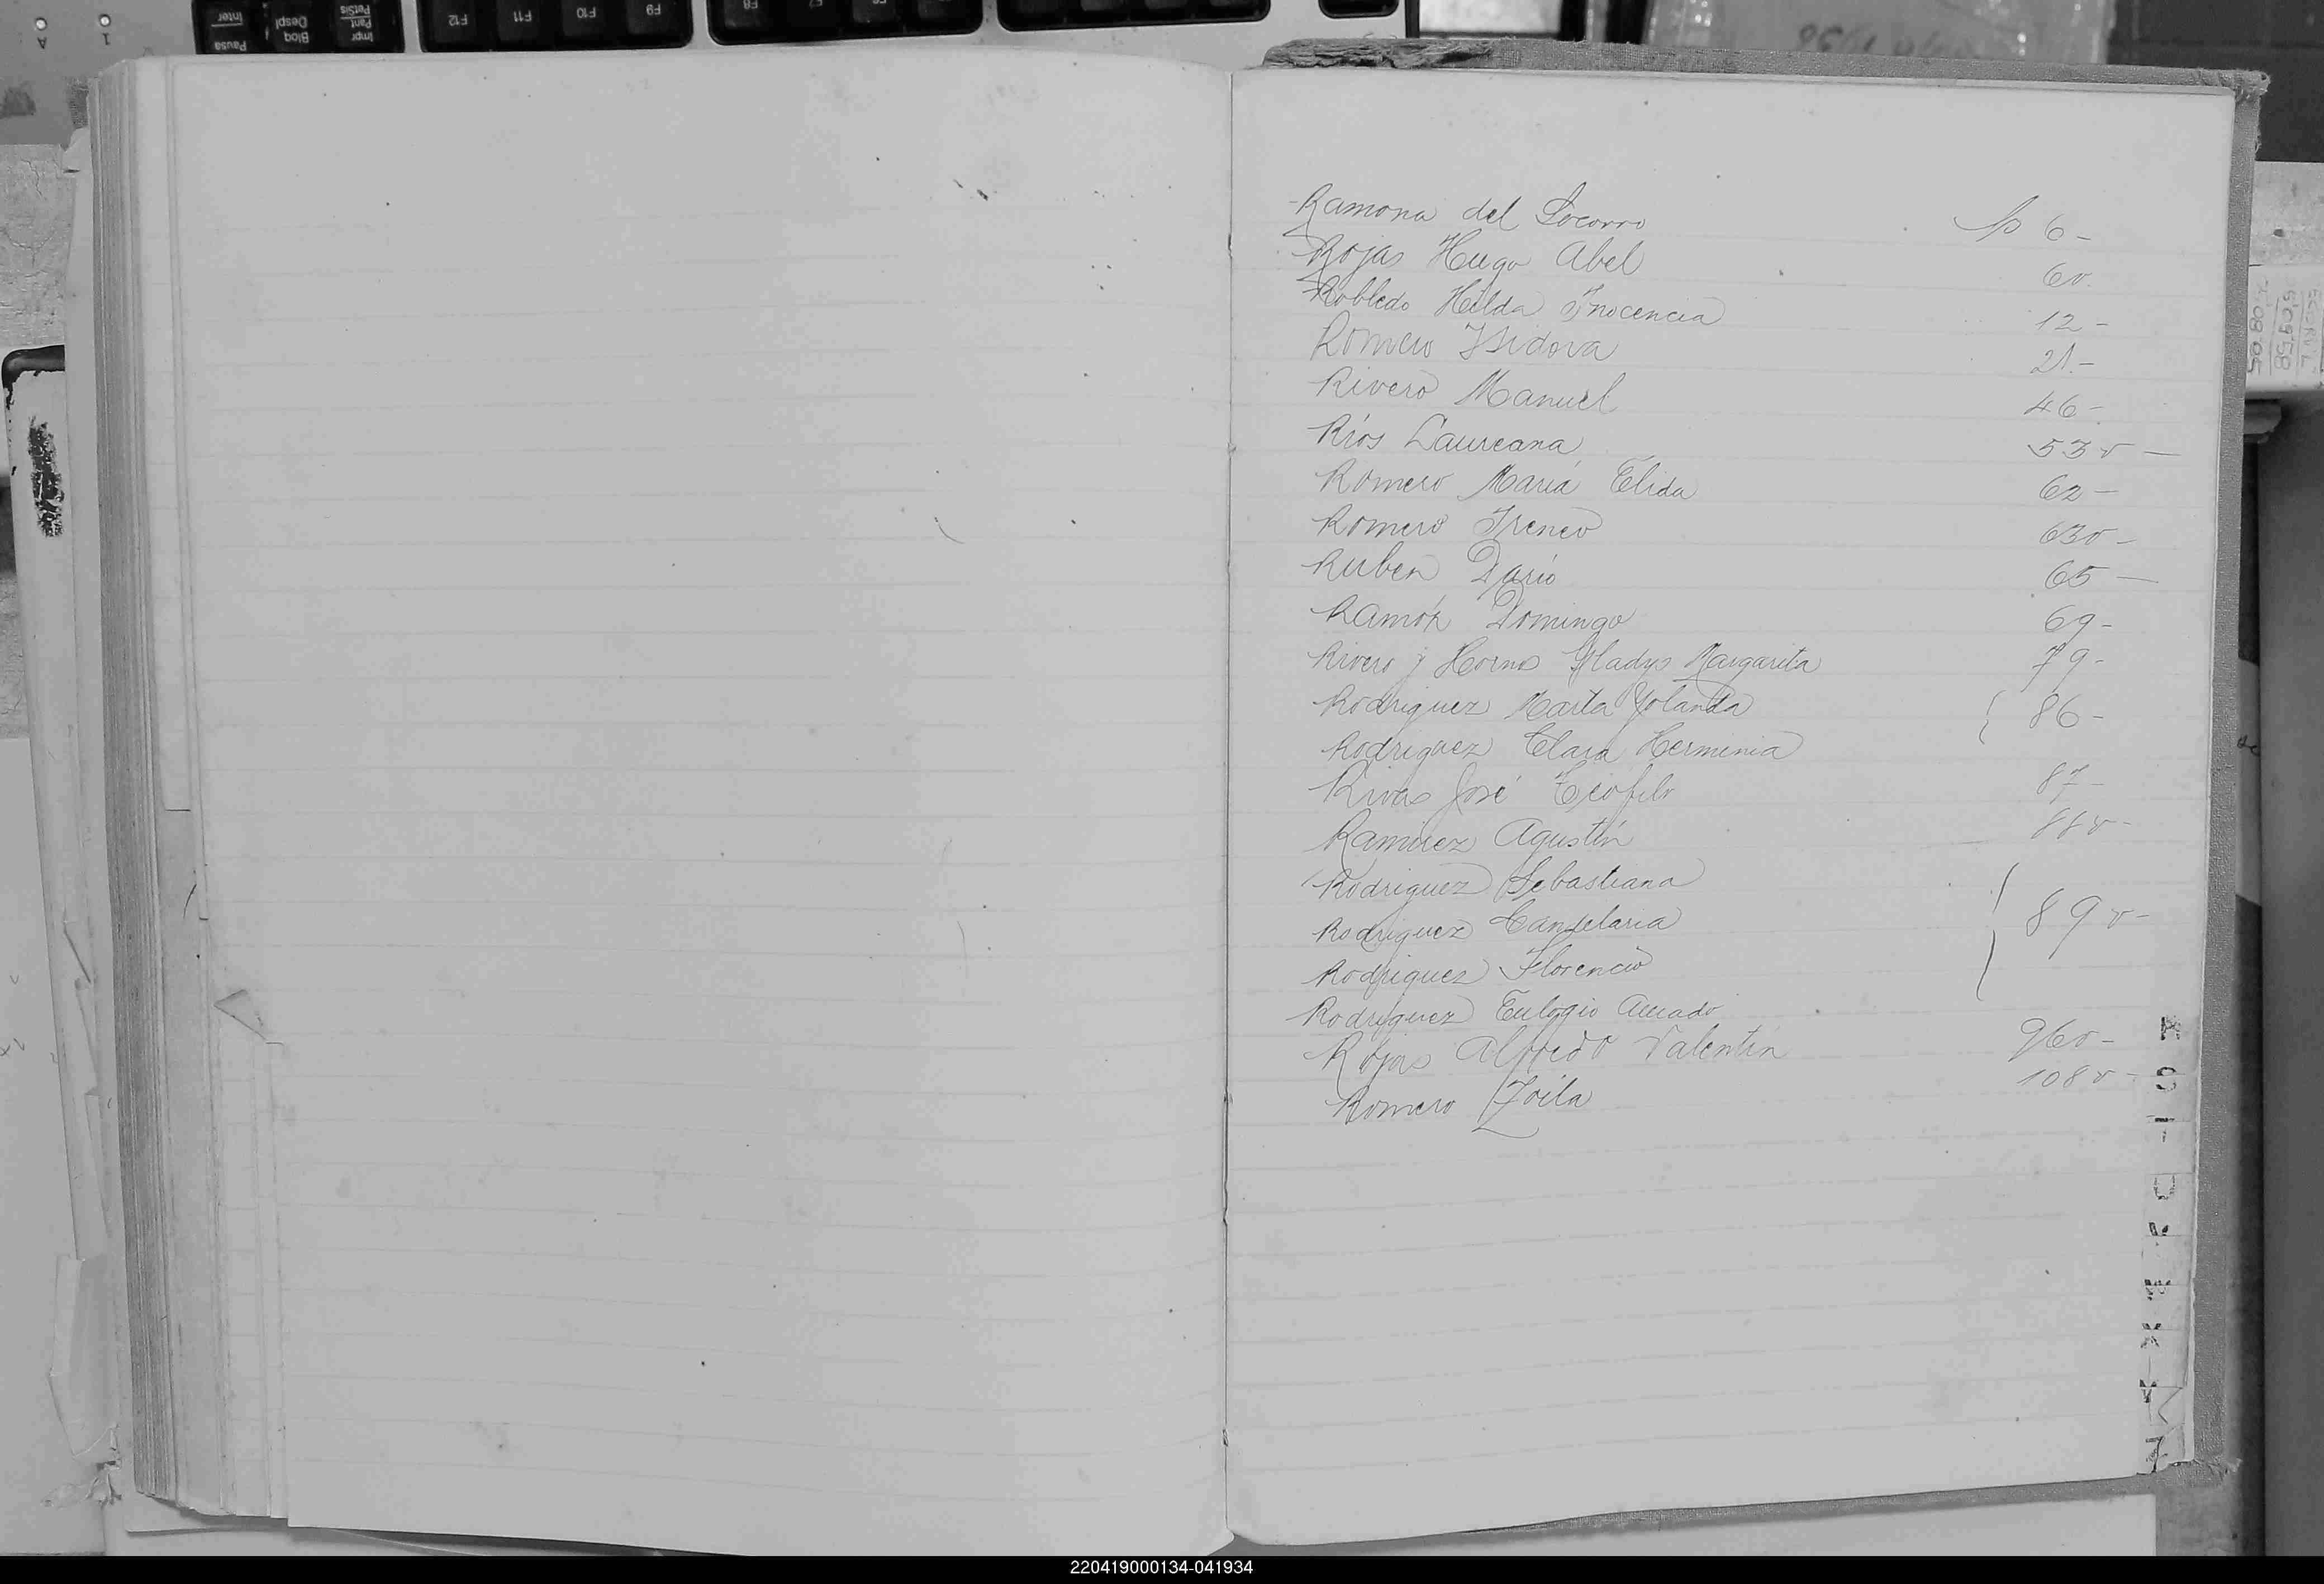 Pausa
Inter
Bloq
Despl
Impr
Pant
PetSis
F12
F11
F10
F9
F8
A
1
Ramona del Socorro fo 6-
Rojas Hugo Abel 6v.
Robledo Hilda Inocencia 12-
Romero Isidora 21.-
Rivero Manuel 46-
Ríos Laureana 53v-
Romero María Elida 62-
Romero Ireneo 63v-
Ruben Darío 65-
Ramón Domingo 69-
Rivero y Horno Gladys Margarita 79-
Rodriguez Marta Yolanda { 86-
Rodriguez Clara Herminia
Rivas José Teófilo 87-
Ramirez Agustín 88v-
Rodriguez Sebastiana
Rodriguez Candelaria { 89v-
Rodriguez Florencio
Rodriguez Eulogio Amado
Rojas Alfredo Valentín 96v-
Romero Zoila 108v-
R
S
T
U
V
W
X
Y
Z
220419000134-041934